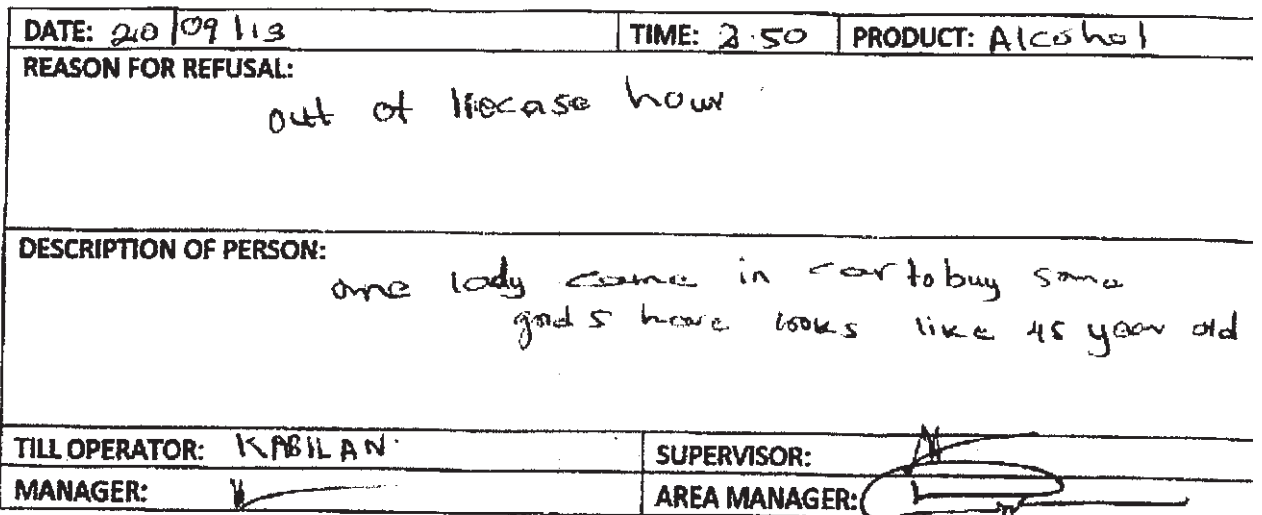 DATE: 20/09/13 TIME: 2.50 PRODUCT: Alcohol
REASON FOR REFUSAL:
out of liecase hour
DESCRIPTION OF PERSON:
one lady came in car to buy some
good s here looks like 45 year old
TILL OPERATOR: KABILAN SUPERVISOR:
MANAGER: AREA MANAGER: